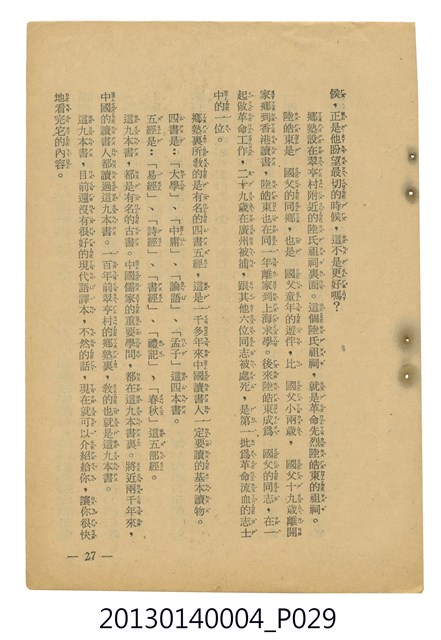 侯，正是他盼望最切的時候，這不是更好嗎？
鄉塾設在翠亨村附近的陸氏祖祠裏面。這個陸氏祖祠，就是革命先烈陸皓東的祖祠。
陸皓東是　國父的同鄉，也是　國父童年的遊伴，比　國父小兩歲，　國父十九歲離開
家鄉到香港讀書，陸皓東也在同一年離家到上海求學。後來陸皓東成爲　國父的同志，在一
起做革命工作，二十九歲在廣州被浦，跟其他六位同志被處死，是第一批爲革命流血的志士
中的一位。
鄉塾裏所敎的是有名的四書五經，這是一千多年來中國讀書人一定要讀的基本讀物。
四書是：「大學」、「中庸」、「論語」、「孟子」這四本書。
五經是：「易經」、「詩經」、「書經」、「禮記」、「春秋」這五部經。
這九本書，都是有名的古書。中國儒家的重要學問，都在這九本書裏。將近兩千年來，
中國的讀書人都讀過這九本書。一百年前翠亨村的鄉塾裏，敎的也就是這九本書。
這九本書，目前還沒有很好的現代語譯本，不然的話，現在就可以介紹給你，讓你很快
地看完它的內容。
— 27 —
20130140004_P029